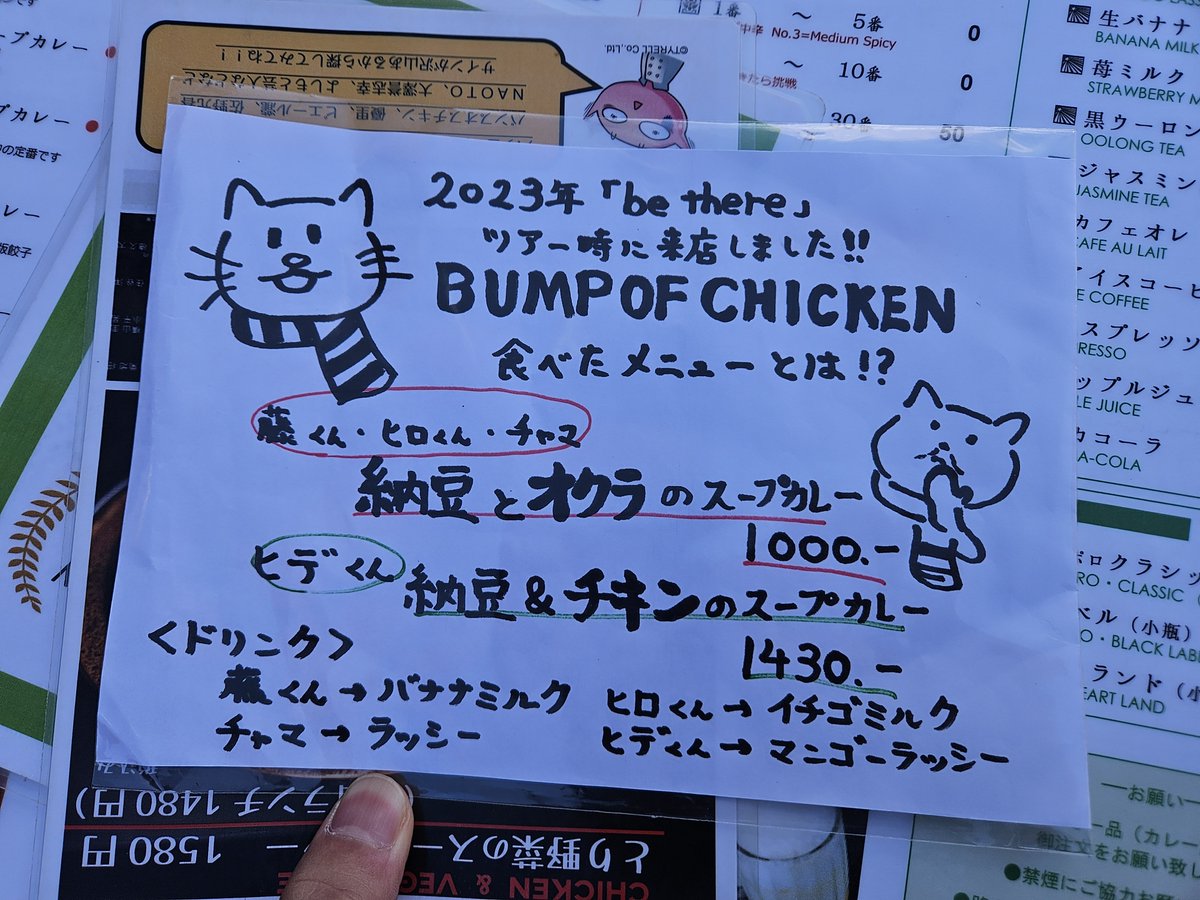 2023年「be there」
ツアー時に来店しました!!
BUMP OF CHICKEN
食べたメニューとは!?
藤くん・ヒロくん・チャマ
納豆とオクラのスープカレー
1000.-
ヒデくん
納豆&チキンのスープカレー
1430.-
<ドリンク>
藤くん→バナナミルク
ヒロくん→イチゴミルク
チャマ→ラッシー
ヒデくん→マンゴーラッシー
ープカレー
カレー
の定番です
カレー
版餃子
©TYRELL Co.,Ltd.
サインが沢山あるから探してみてね!!
NAOTO、大澤誉志幸、よしもと芸人などなど
1番 〜 5番 0
No.3=Medium Spicy
〜 10番 0
たら挑戦
30番 50
生バナナ
BANANA MILK
苺ミルク
STRAWBERRY M
黒ウーロン
OOLONG TEA
ジャスミン
JASMINE TEA
カフェオレ
CAFE AU LAIT
アイスコーヒ
E COFFEE
スプレッソ
RESSO
ップルジュ
LE JUICE
カコーラ
A-COLA
ポロクラシッ
RO・CLASSIC
ベル(小瓶)
O・BLACK LABE
ランド(小
EART LAND
―お願い―
一品(カレー
御注文をお願い致し
●禁煙にご協力お願
ランチ 1480円)
とり野菜のスー
1580円
CHICKEN & VEG